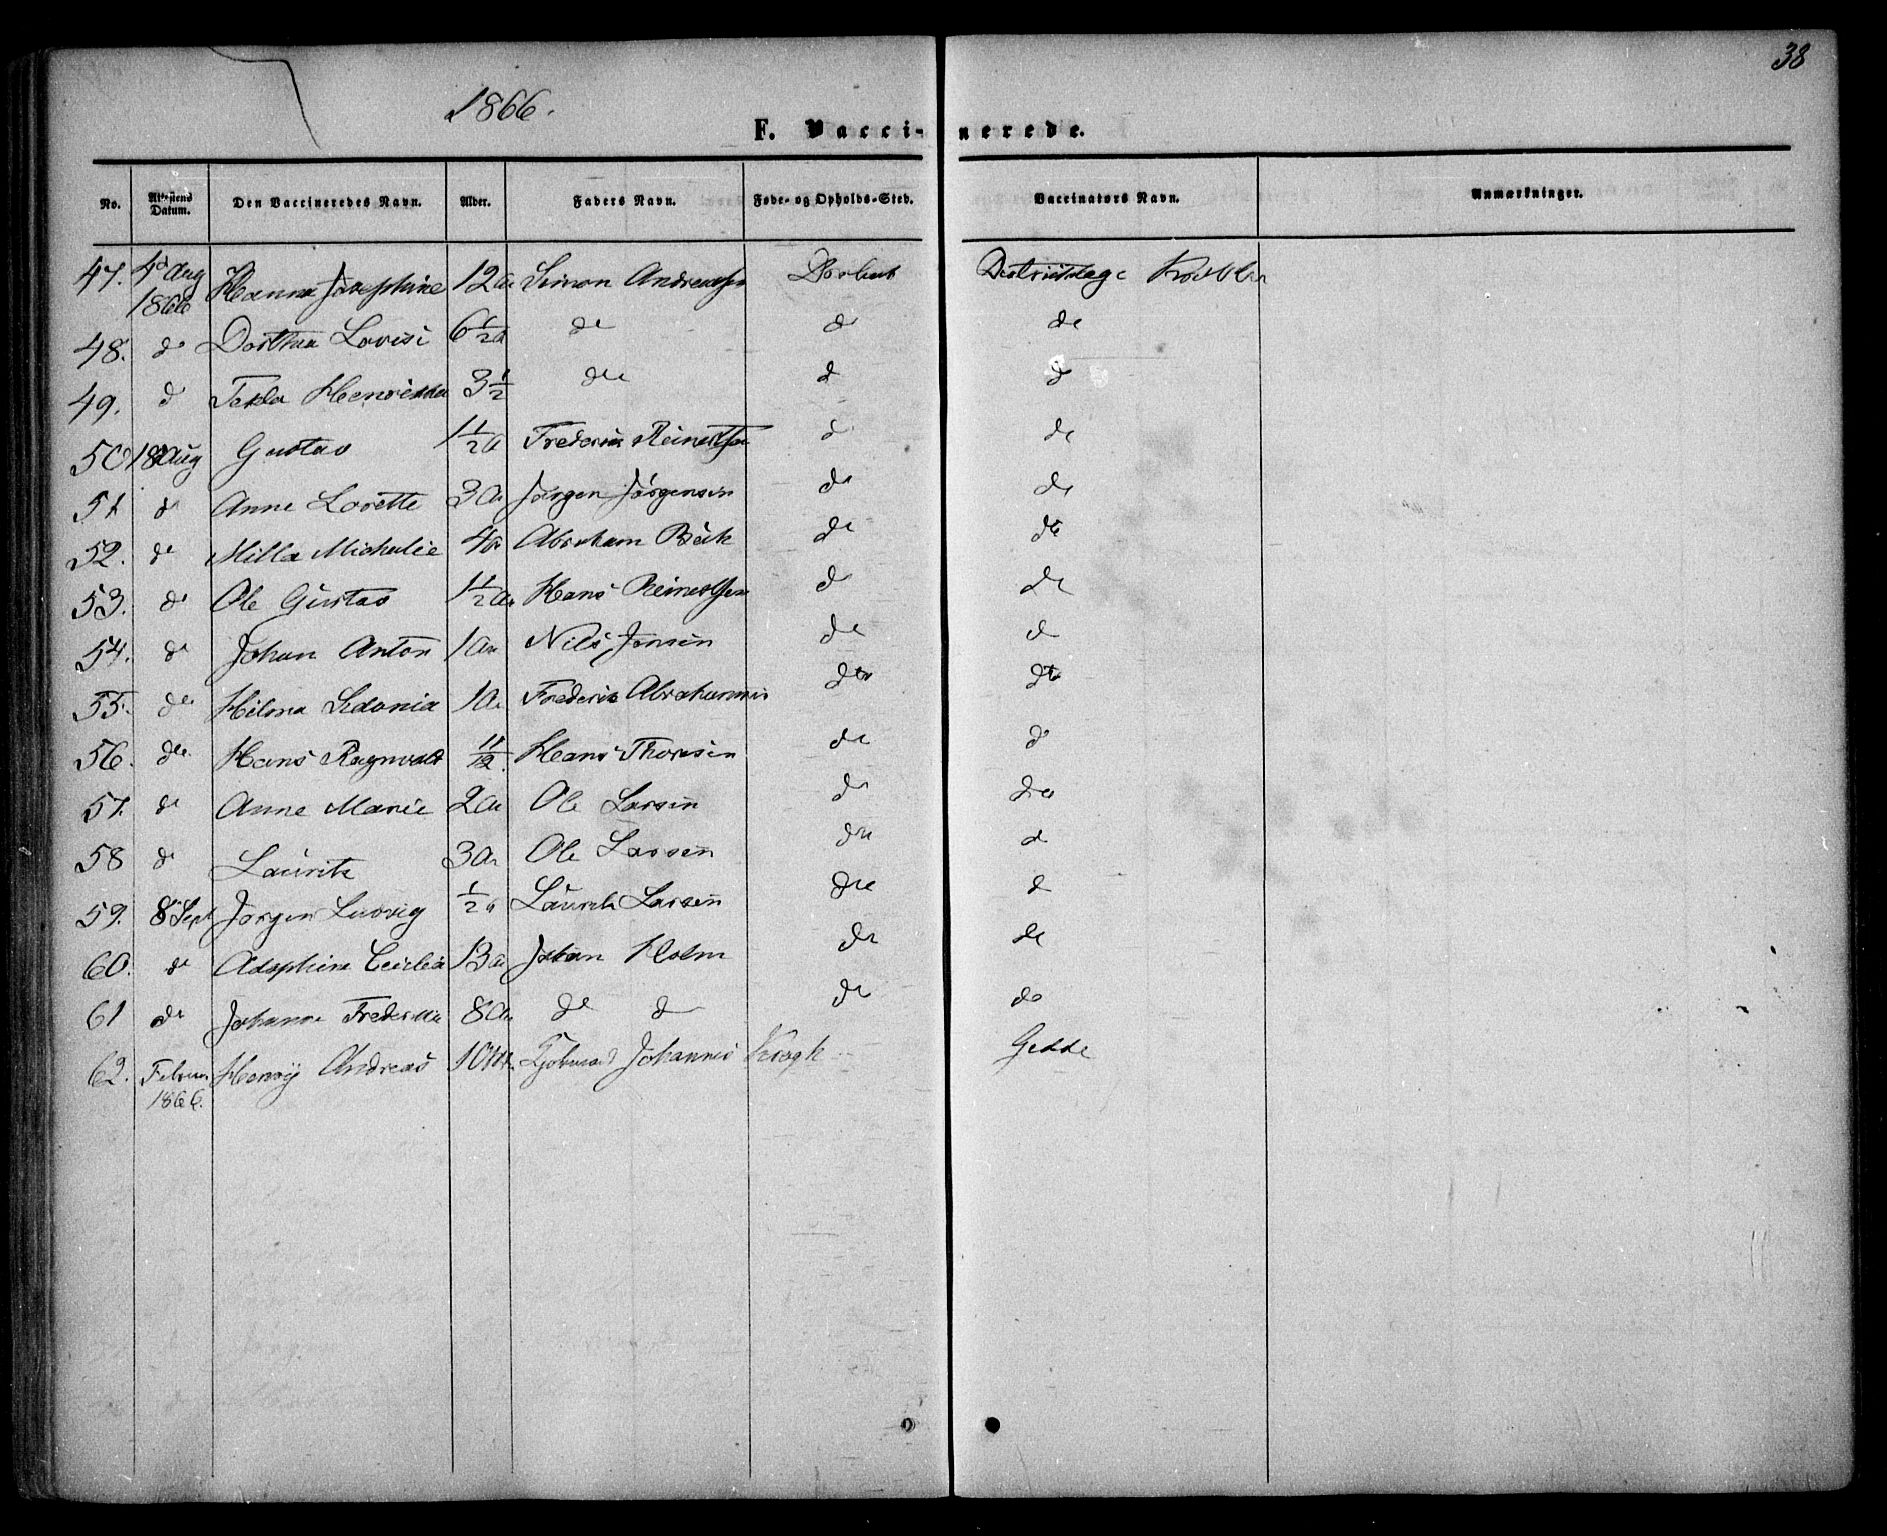 38
1866.
F. Vaccinerede.
No. Attestens Datum. Den Vaccineredes Navn. Alder. Faders Navn. Føde- og Opholds-Sted. Vaccinators Navn. Anmærkninger.
47. 4 Aug 1866 Hanna Josephine 12a Simon Andreassen Distriktslæge
48. do Dorthea Lovise 6½a do do do
49. do Tekla 3½ do do do
50 18 Aug Gustav 1½a Frederik Reinertsen do do
51 do Anne Lovette 3a Jørgen Jørgensen do do
52. do Milla Michaelie 4a Abraham Beck do do
53. do Ole Gustav 1½a Hans Reinertsen do do
54. do Johan Anton 1a Nils Jensen do do
55. do Hilma Sedonia 1a Frederik Abrahamsen do do
56. do Hans Ragnvald 11/12 Hans Thoresen do do
57. do Anne Marie 2a Ole Larsen do do
58 do Lauritz 3a Ole Larsen do do
59. 8 Sept Jørgen Ludvig ½a Lauritz Larsen do do
60. do Cecilia 13a Johan Holm do do
61 do Johanne Frederikke 8a do do do do
62. Februar 1866. Henrÿ Andreas 10 Johannes Krogh Gedde